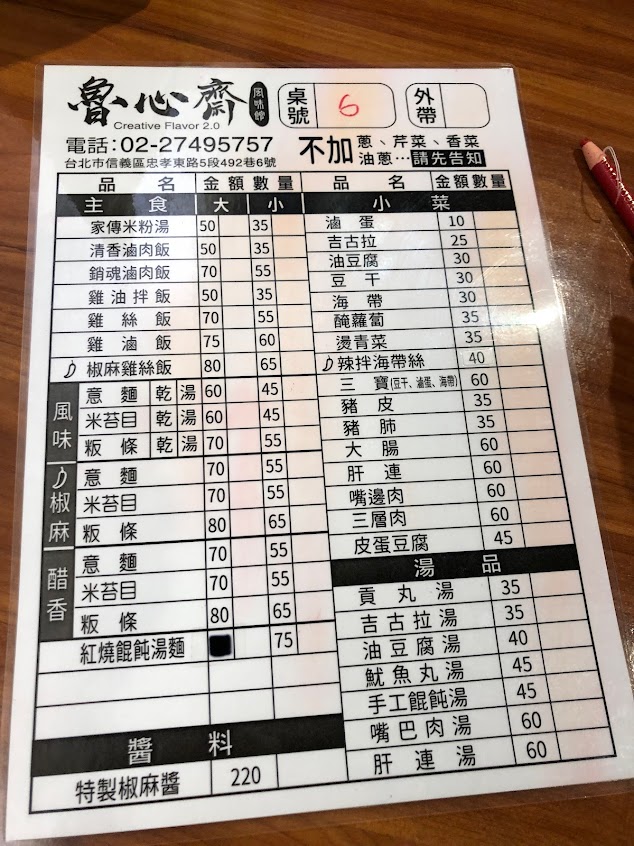 魯心齋 風味館
Creative Flavor 2.0
桌號 6
外帶
電話：02-27495757
台北市信義區忠孝東路5段492巷6號
不加 蔥、芹菜、香菜
油蔥…請先告知
品名 金額 數量
主食 大 小
家傳米粉湯 50 35
清香滷肉飯 50 35
銷魂滷肉飯 70 55
雞油拌飯 50 35
雞絲飯 70 55
雞滷飯 75 60
椒麻雞絲飯 80 65
風味
意麵 乾 湯 60 45
米苔目 乾 湯 60 45
粄條 乾 湯 70 55
椒麻
意麵 70 55
米苔目 70 55
粄條 80 65
醋香
意麵 70 55
米苔目 70 55
粄條 80 65
紅燒餛飩湯麵 75
醬料
特製椒麻醬 220
品名 金額 數量
小菜
滷蛋 10
吉古拉 25
油豆腐 30
豆干 30
海帶 30
醃蘿蔔 35
燙青菜 35
辣拌海帶絲 40
三寶(豆干、滷蛋、海帶) 60
豬皮 35
豬肺 35
大腸 60
肝連 60
嘴邊肉 60
三層肉 60
皮蛋豆腐 45
湯品
貢丸湯 35
吉古拉湯 35
油豆腐湯 40
魷魚丸湯 45
手工餛飩湯 45
嘴巴肉湯 60
肝連湯 60